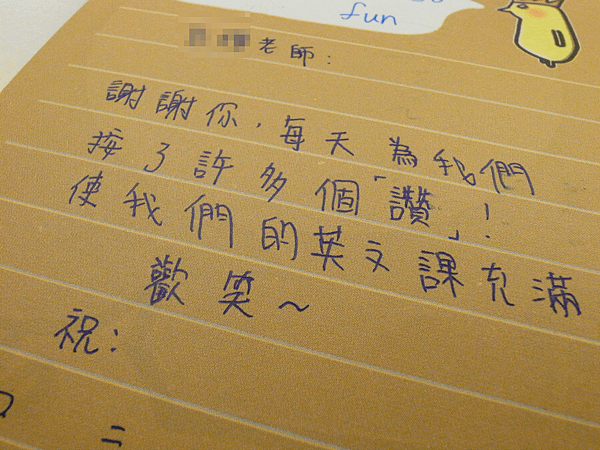 fun
老師：
謝謝你，每天為我們
按了許多個「讚」！
使我們的英文課充滿
歡笑～
祝：